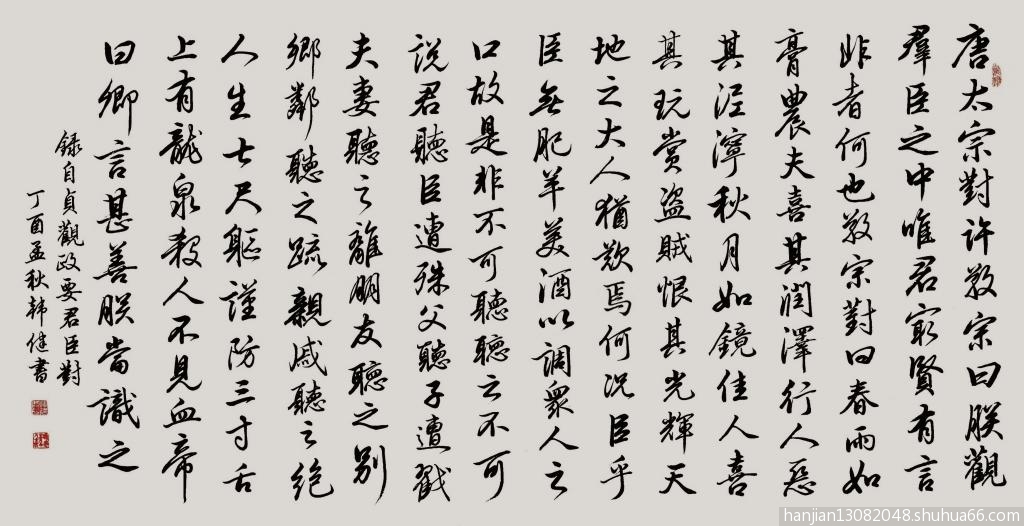 唐太宗對許敬宗曰朕觀
羣臣之中唯君寂賢有言
非者何也敬宗對曰春雨如
膏農夫喜其潤澤行人惡
其泥濘秋月如鏡佳人喜
其玩賞盜賊恨其光輝天
地之大人猶歎焉何況臣乎
臣無肥羊美酒以調衆人之
口故是非不可聽聽之不可
說君聽臣遭殊父聽子遭戮
夫妻聽之離朋友聽之别
鄉鄰聽之疏親戚聽之絕
人生七尺軀謹防三寸舌
上有龍泉殺人不見血帝
曰卿言甚善朕當識之
錄自貞觀政要君臣對
丁酉孟秋韩健書
hanjian13082048.shuhua66.com